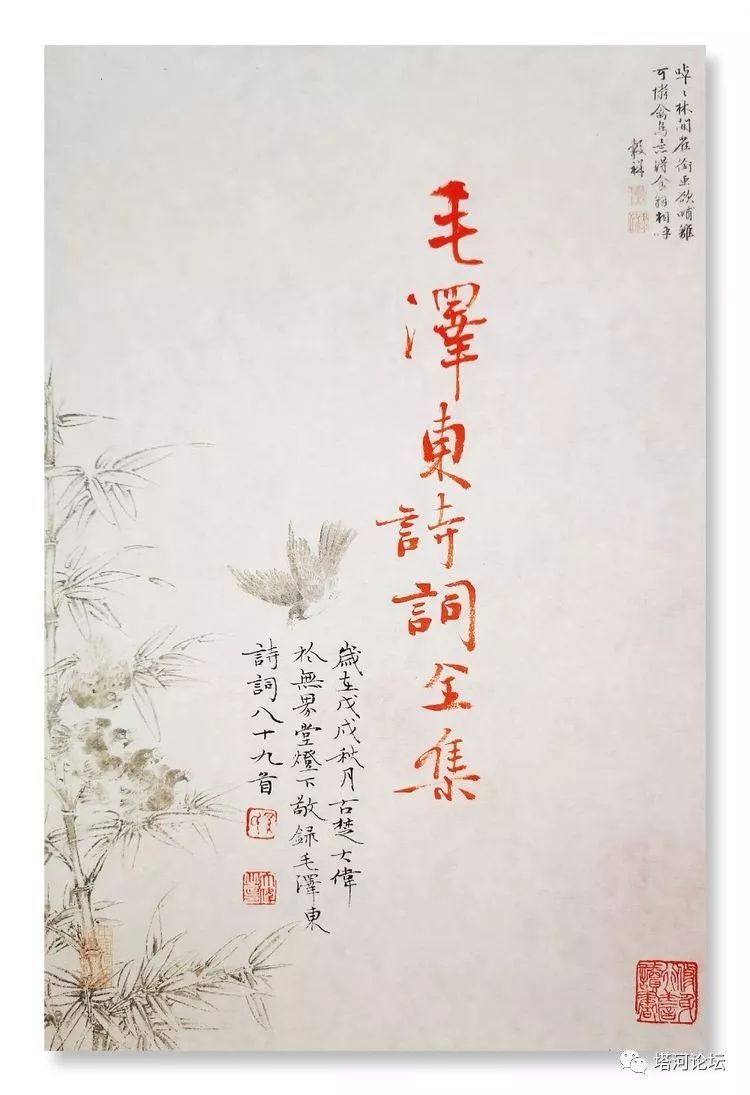 啅〻林間雀銜虫欲哺雛
可憐禽鳥意得食相呼
穀祥
毛澤東詩詞全集
歲在戊戌秋月古楚大偉
於無界堂燈下敬錄毛澤東
詩詞八十九首
塔河论坛